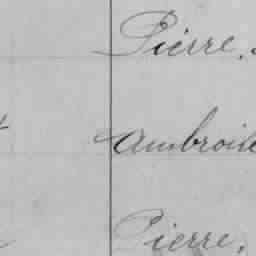 Pierre,
Ambroise
Pierre,